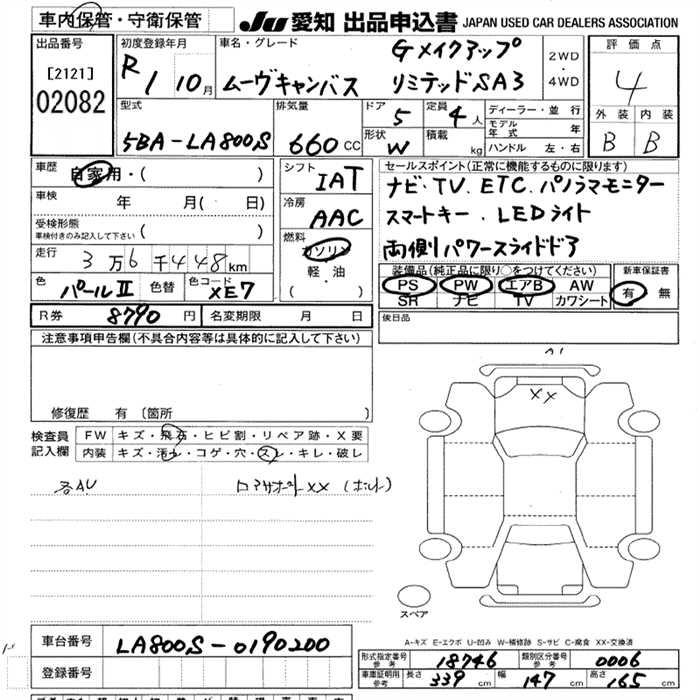 車内保管・守衛保管
JU 愛知 出品申込書 JAPAN USED CAR DEALERS ASSOCIATION
出品番号
[2121]
02082
初度登録年月
R1 10月
車名・グレード
ムーヴキャンバス
Gメイクアップ
リミテッドSA3
2WD
・
4WD
評価点
4
外装 内装
B B
型式
5BA-LA800S
排気量
660 CC
ドア
5
形状
W
定員
4人
積載
kg
ディーラー・並行
モデル年式 年
ハンドル 左・右
車歴
自家用・( )
車検
年 月( 日)
受検形態
車検付きのみ記入して下さい ( )
走行
3万6千448km
色
パールⅡ
色替
色コード
XE7
シフト
IAT
冷房
AAC
燃料
ガソリン
軽・油
( ・ )
セールスポイント(正常に機能するものに限ります)
ナビ・TV、ETC、パノラマモニター
スマートキー、LEDライト
両側パワースライドドア
装備品(純正品に限り○をつけてください)
PS PW エアB AW
SR ナビ TV カワシート
新車保証書
有・無
R券 8790円
名変期限 月 日
後日品
注意事項申告欄(不具合内容等は具体的に記入して下さい)
修復歴 有〔箇所 〕
検査員
記入欄
FW キズ・飛石・ヒビ割・リペア跡・X要
内装 キズ・汚レ・コゲ・穴・スレ・キレ・破レ
各AU
ロアサポートXX (ボルト)
XX
スペア
A-キズ E-エクボ U-凹み W-補修跡 S-サビ C-腐食 XX-交換済
車台番号
LA800S-0190200
登録番号
形式指定番号
参考
18746
類別区分番号
参考
0006
車庫証明用
参考
長さ 339cm
幅 147cm
高さ 165cm